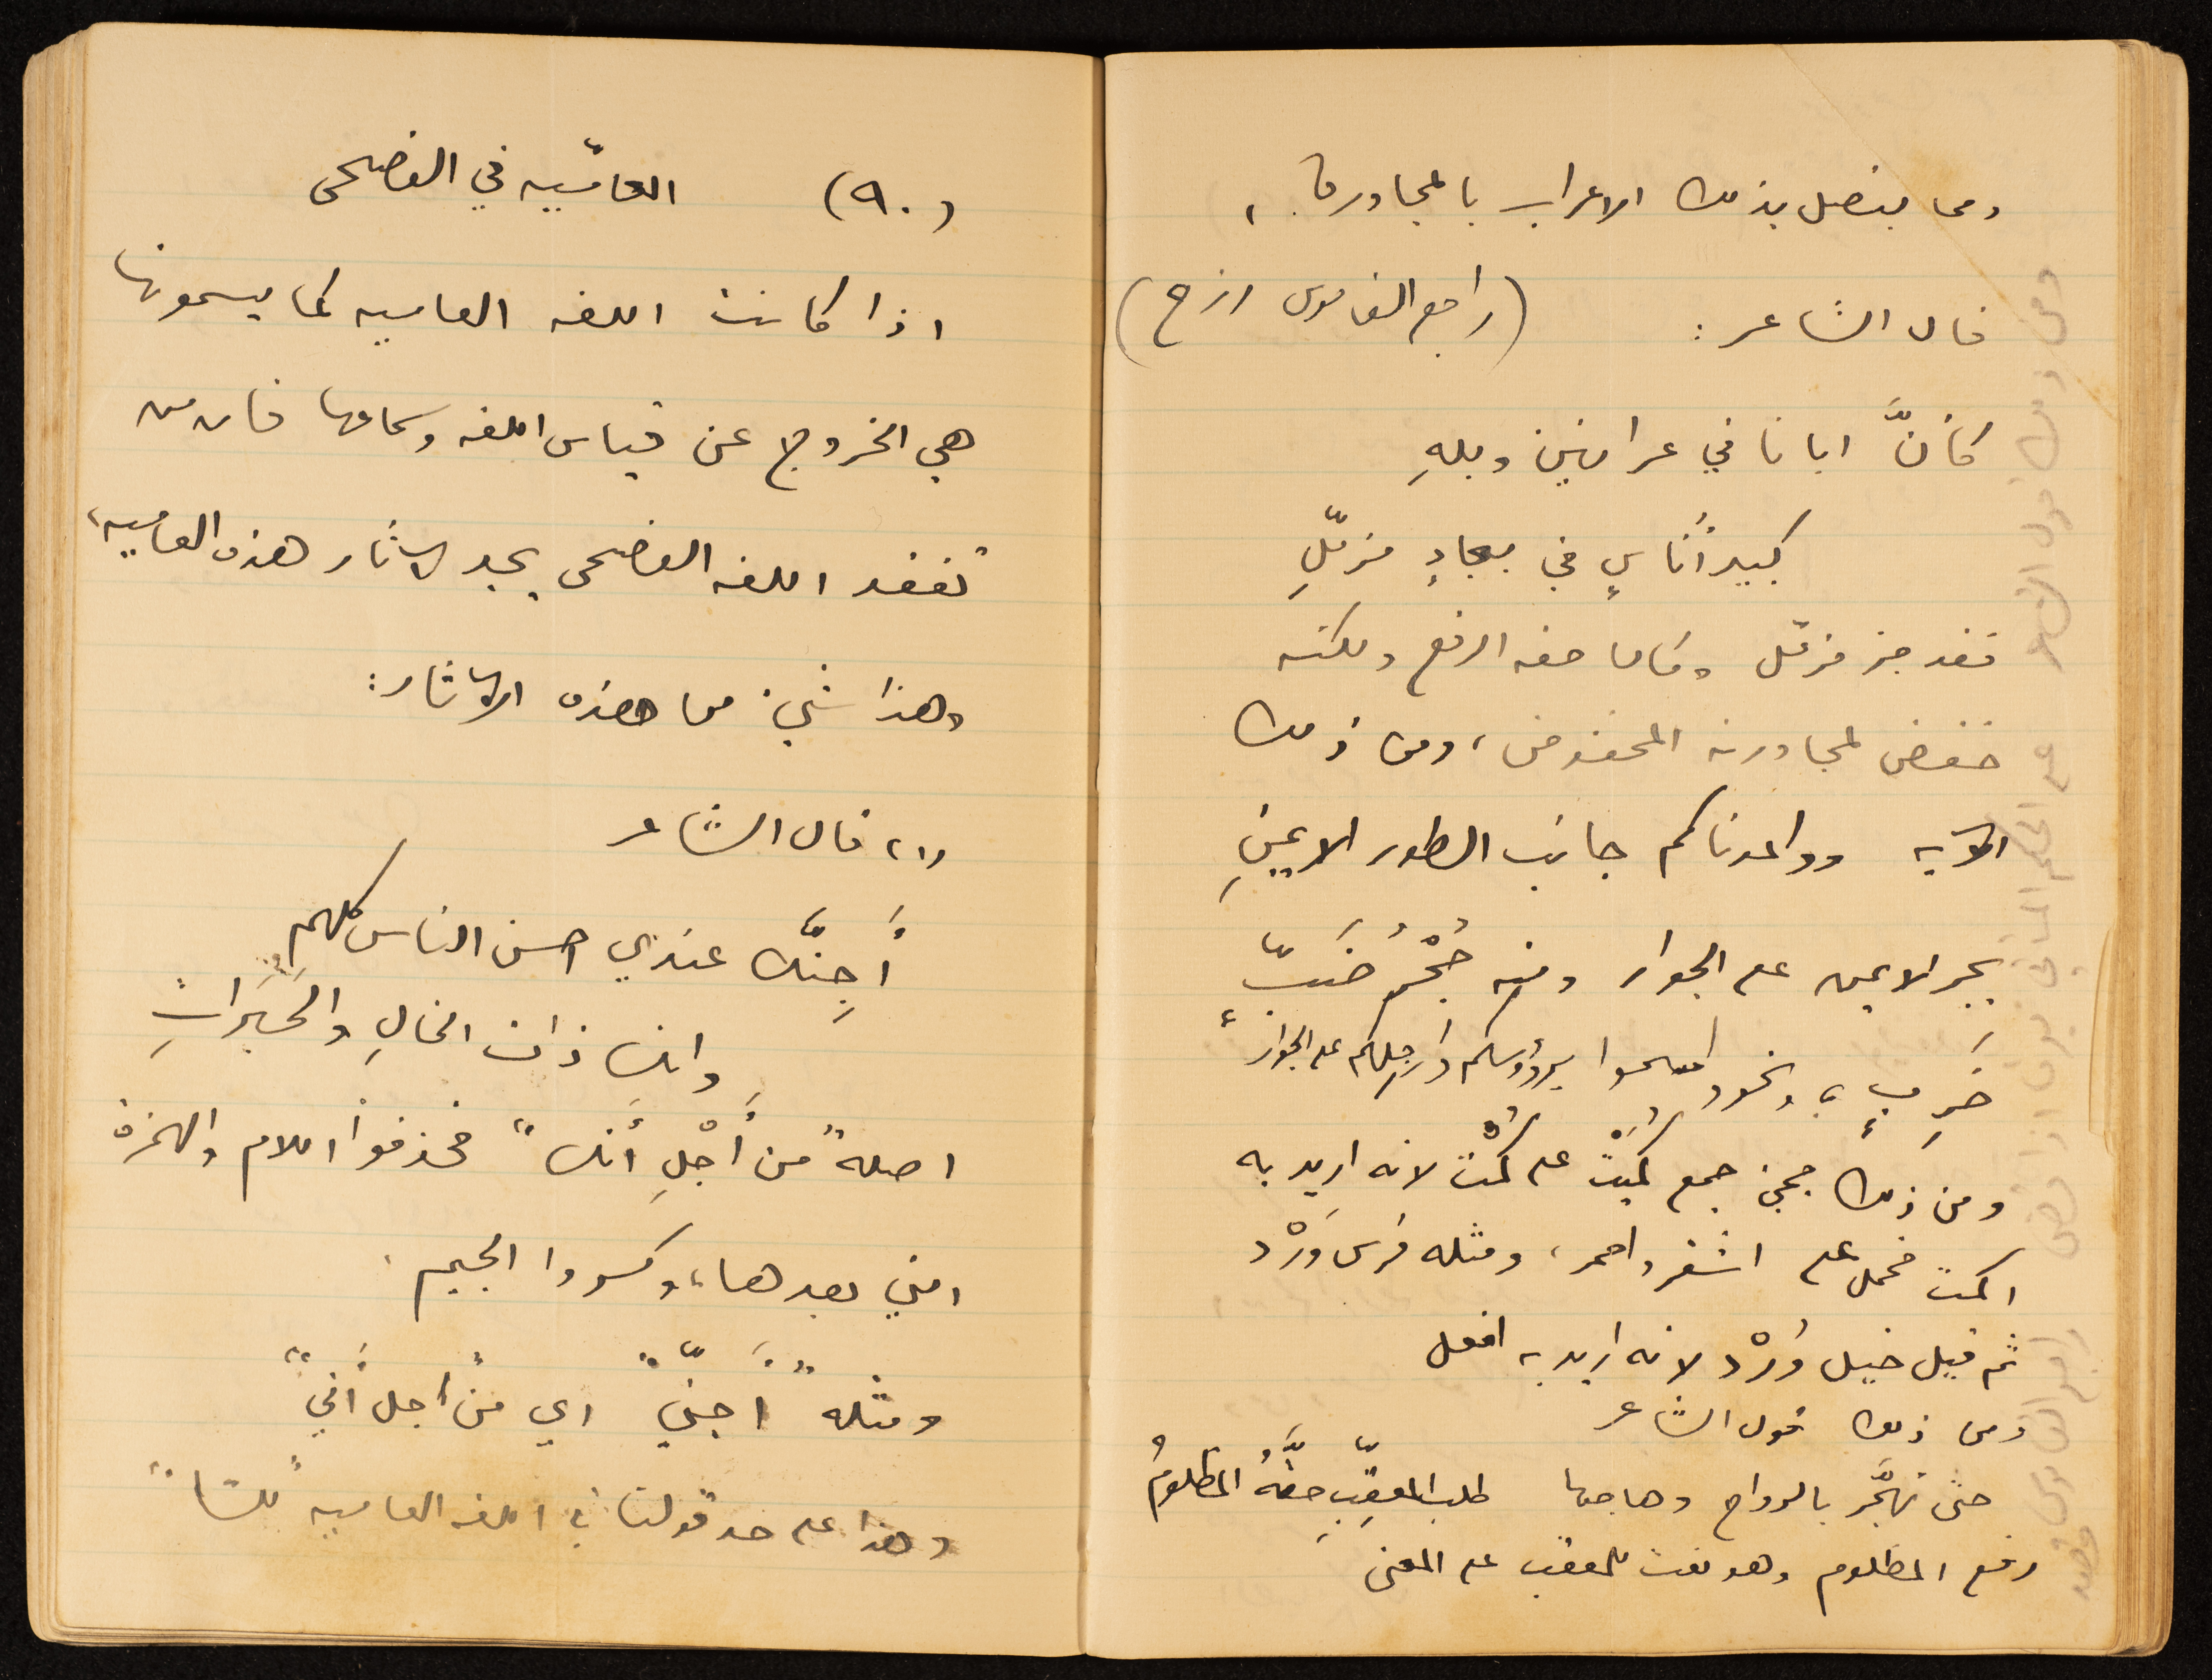 ومما يتصل بذلك الاعراب بالمجاورة،
قال الشاعر: (راجع القاموس ازح)
كأنَّ ابانا في عرانين وبلهِ
كبير أناسٍ في بجادٍ مزمّلِ
فقد جر مزمّل وكان حقه الرفع ولكنه
خفض لمجاورته المخفوض، ومن ذلك
الآية وواعدناكم جانب الطور الايمنِ
بجر الايمن على الجوار ومنه جُحْرُ ضَبّ
خَرِبٍ، ونحو امسحوا برؤوسكم وارجلِكم على الجوار
ومن ذلك مجيء جمع كُمَيْت على كُمْت لانه اريد به
اكمت فحمل على اشقر واحمر، ومثله فرس وَرْد
ثم قيل خيل وُرْد لانه اريد به افعل
ومن ذلك قول الشاعر
حتى تهجَّر بالرواح وهاجها طلب المعقِّبِ حقَّهُ المظلومُ
رفع المظلوم وهو نعت للمعقب على المعنى
(٩٠) العاميّه في الفصحى
اذا كانت اللغه العاميه كما يسمونها
هي الخروج عن قياس اللغه وسماعها فان من
تفقد اللغه الفصحى يجد لآثار هذه العاميه،
وهذا شيء من هذه الآثار:
(١) قال الشاعر
أَجِنَّك عندي احسن الناس كلهم
وانك ذات الخالِ والحِبَراتِ
اصله "من أَجْلِ أَنك" فحذفوا اللام والهمزة
التي بعدها، وكسروا الجيم.
ومثله "أَجنّي" اي من أجل أَني"
وهذا على حد قولنا في اللغه العاميه "لسّا"